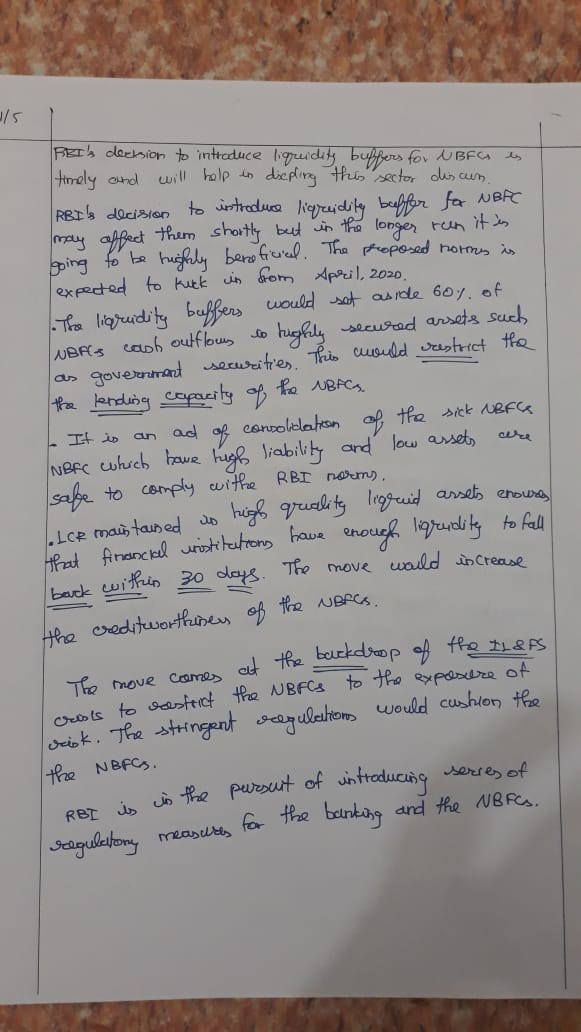 1/5
RBI's decision to introduce liquidity buffers for NBFCs is
timely and will help in discpling this sector discuss.
RBI's decision to introduce liquidity buffer for NBFC
may affect them shortly but in the longer run it is
going to be highly beneficial. The proposed norms is
expected to kick in from April, 2020.
. The liquidity buffers would set aside 60% of
NBFCs cash outflows so highly secured assets such
as government securities. This would restrict the
the lending capacity of the NBFCs.
- It is an act of consolidation of the sick NBFCs
NBFC which have high liability and low assets are
safe to comply withe RBI norms.
. LCR maintained in high quality liquid assets ensures
that financial institutions have enough liquidity to fall
back within 30 days. The move would increase
the creditworthiness of the NBFCs.
The move comes at the backdrop of the IL&FS
crisis to restrict the NBFCs to the exposure of
risk. The stringent regulations would cushion the
the NBFCs.
RBI is in the pursuit of introducing series of
regulatory measures for the banking and the NBFCs.